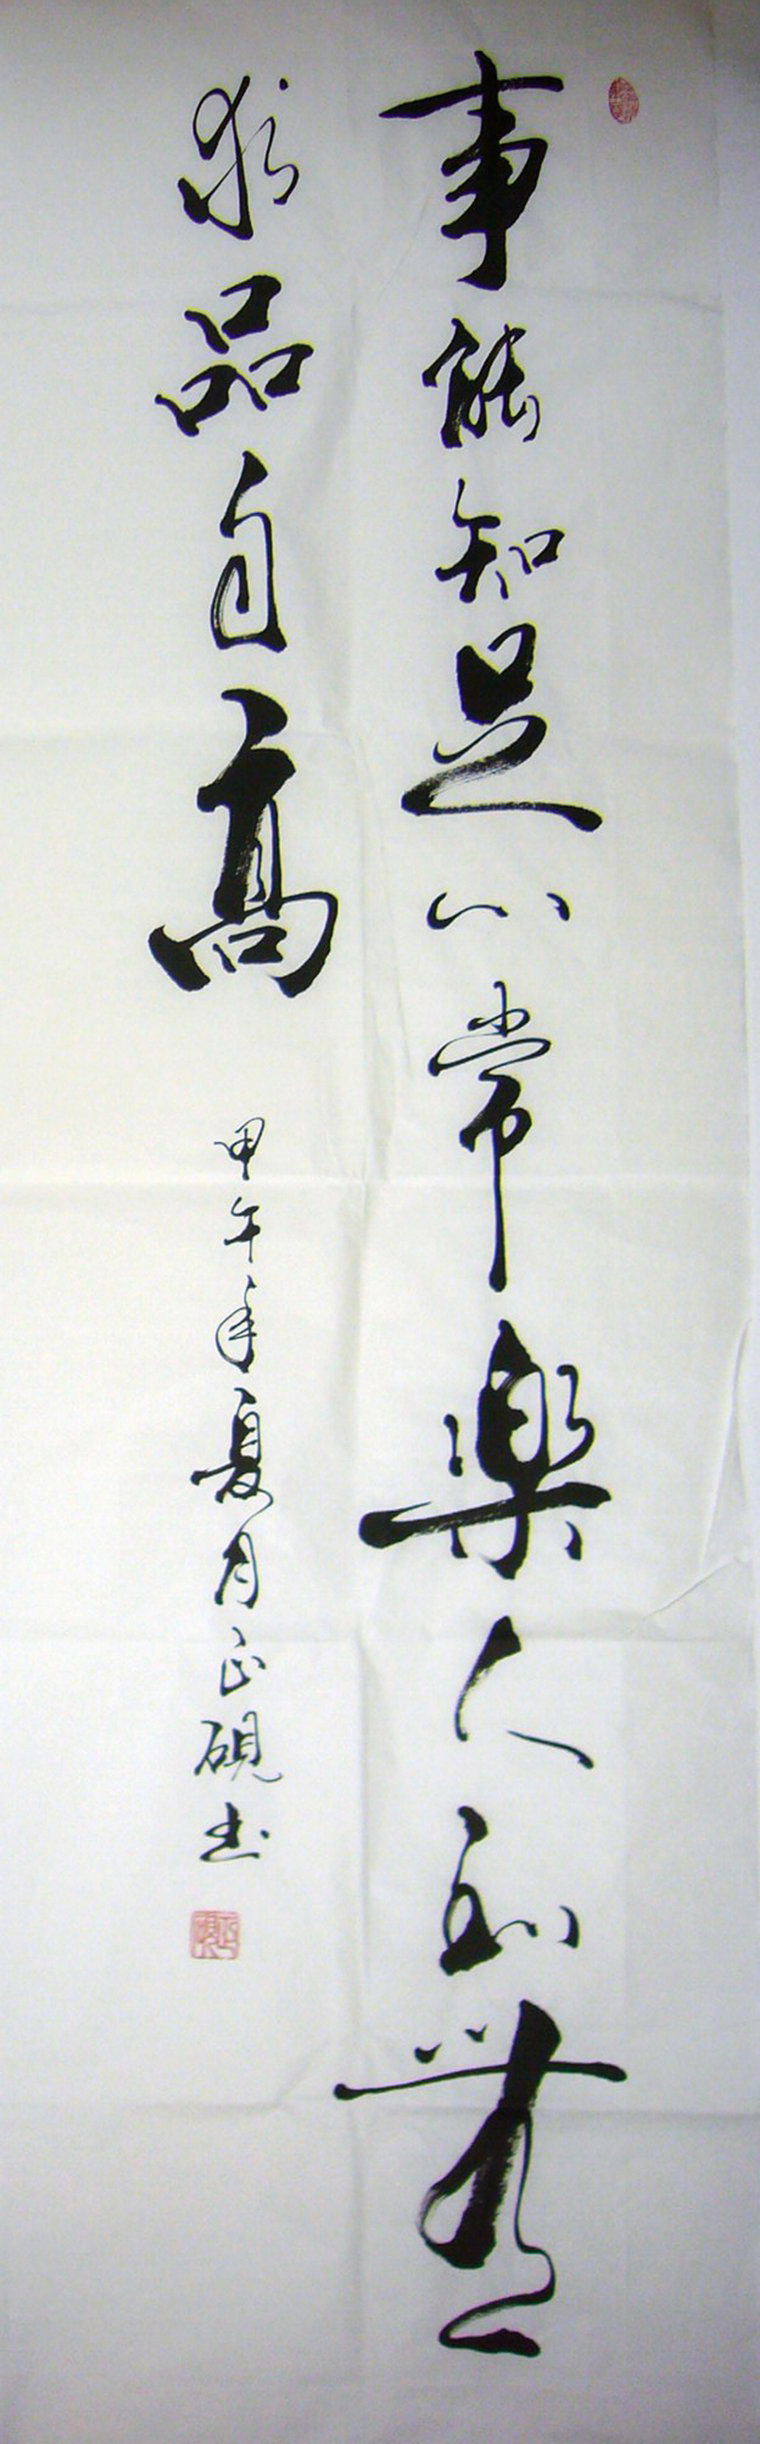 事能知足心常樂人到無
求品自高
甲午年夏月正硯书
正硯